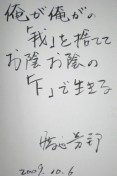 俺が俺がの
「我」を捨てて
お陰お陰の
「下」で生きる
2009.10.6